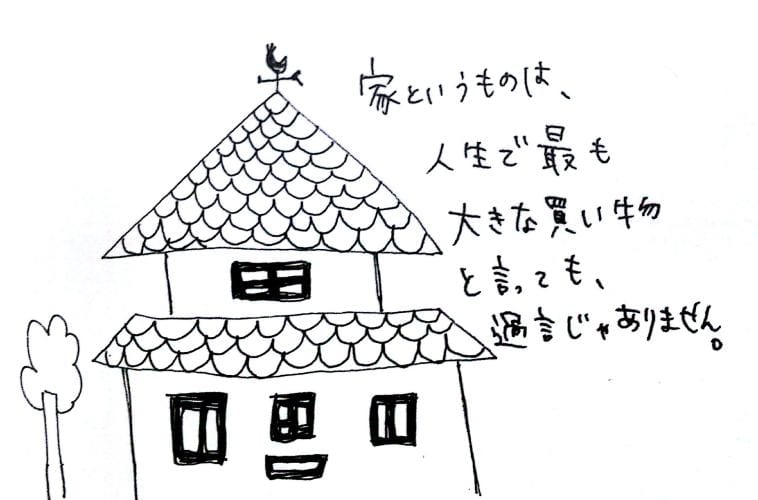 家というものは、
人生で最も
大きな買い物
と言っても、
過言じゃありません。